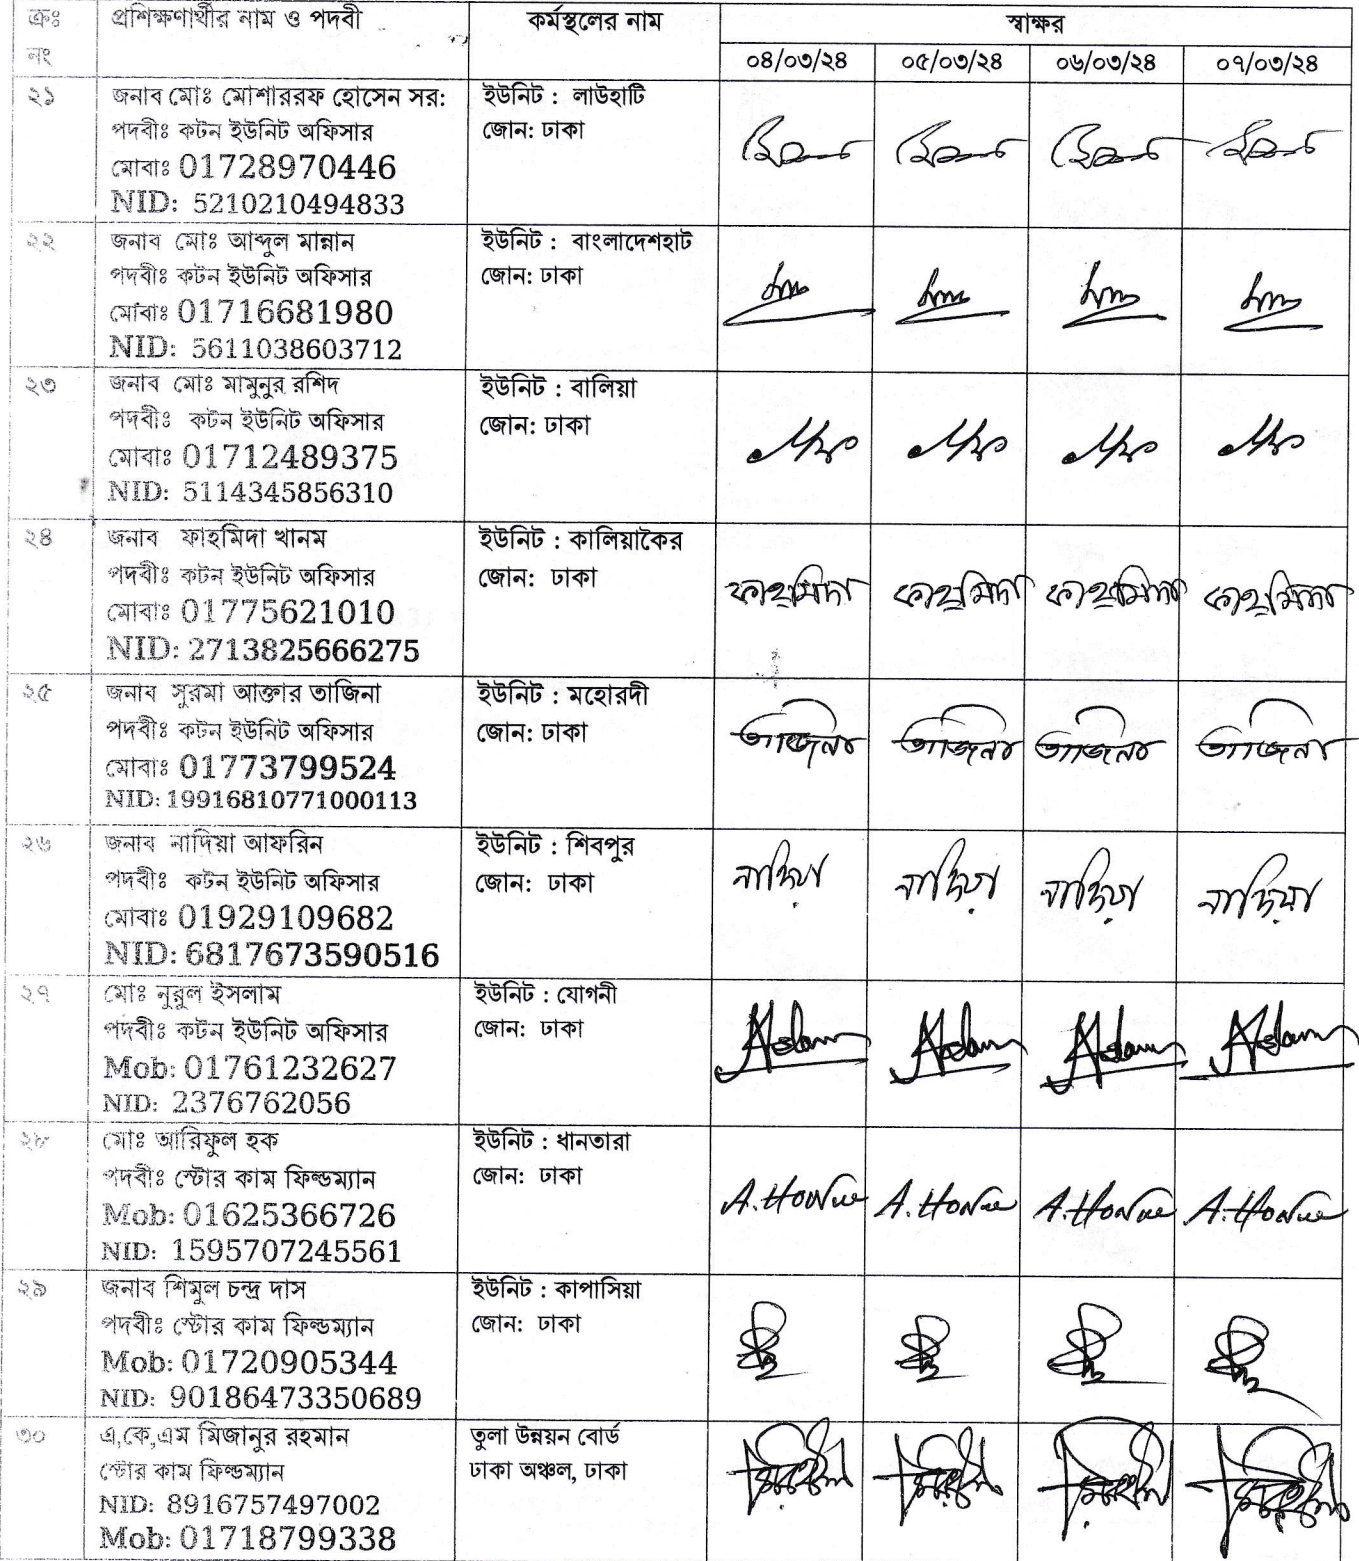 ক্রঃ নং
প্রশিক্ষণার্থীর নাম ও পদবী
কর্মস্থলের নাম
স্বাক্ষর
০৪/০৩/২৪ ০৫/০৩/২৪ ০৬/০৩/২৪ ০৭/০৩/২৪
২১
জনাব মোঃ মোশাররফ হোসেন সর:
পদবীঃ কটন ইউনিট অফিসার
মোবাঃ 01728970446
NID: 5210210494833
ইউনিট : লাউহাটি
জোন: ঢাকা
২২
জনাব মোঃ আব্দুল মান্নান
পদবীঃ কটন ইউনিট অফিসার
মোবাঃ 01716681980
NID: 5611038603712
ইউনিট : বাংলাদেশহাট
জোন: ঢাকা
২৩
জনাব মোঃ মামুনুর রশিদ
পদবীঃ কটন ইউনিট অফিসার
মোবাঃ 01712489375
NID: 5114345856310
ইউনিট : বালিয়া
জোন: ঢাকা
২৪
জনাব ফাহমিদা খানম
পদবীঃ কটন ইউনিট অফিসার
মোবাঃ 01775621010
NID: 2713825666275
ইউনিট : কালিয়াকৈর
জোন: ঢাকা
ফাহমিদা ফাহমিদা ফাহমিদা ফাহমিদা
২৫
জনাব সুরমা আক্তার তাজিনা
পদবীঃ কটন ইউনিট অফিসার
মোবাঃ 01773799524
NID: 19916810771000113
ইউনিট : মহোরদী
জোন: ঢাকা
তাজিনা তাজিনা তাজিনা তাজিনা
২৬
জনাব নাদিয়া আফরিন
পদবীঃ কটন ইউনিট অফিসার
মোবাঃ 01929109682
NID: 6817673590516
ইউনিট : শিবপুর
জোন: ঢাকা
নাদিয়া নাদিয়া নাদিয়া নাদিয়া
২৭
মোঃ নুরুল ইসলাম
পদবীঃ কটন ইউনিট অফিসার
Mob: 01761232627
NID: 2376762056
ইউনিট : যোগনী
জোন: ঢাকা
২৮
মোঃ আরিফুল হক
পদবীঃ স্টোর কাম ফিল্ডম্যান
Mob: 01625366726
NID: 1595707245561
ইউনিট : ধানতারা
জোন: ঢাকা
২৯
জনাব শিমুল চন্দ্র দাস
পদবীঃ স্টোর কাম ফিল্ডম্যান
Mob: 01720905344
NID: 90186473350689
ইউনিট : কাপাসিয়া
জোন: ঢাকা
৩০
এ,কে,এম মিজানুর রহমান
স্টোর কাম ফিল্ডম্যান
NID: 8916757497002
Mob: 01718799338
তুলা উন্নয়ন বোর্ড
ঢাকা অঞ্চল, ঢাকা